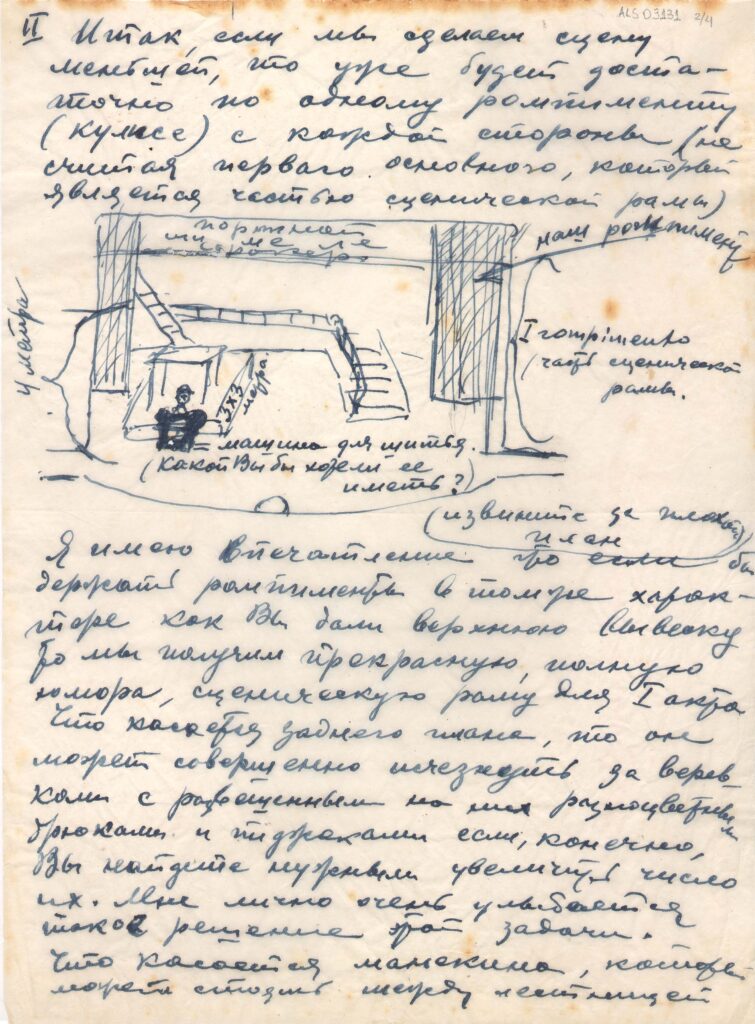 ALS 03131 2/4
II Итак, если мы сделаем сцену
меньшей, то уже будет доста-
точно по одному ромпименту
(кулисе) с каждой стороны (не
считая перваго основного, который
является частью сценической рамы)
портной
наш ромпимент
4 метра
I
часть сценической
рамы.
3x3
метра.
= машина для шитья.
(Какой Вы бы хотели ее
иметь?)
(извините за плохой
план
Я имею впечатление что если бы
держать ромпименты в том же харак-
тере как Вы дали верхнюю вывеску
то мы получим прекрасную, полную
юмора, сценическую раму для I акта
Что касается заднего плана, то он
может совершенно исчезнуть за верев-
ками с развешенными на них разноцветными
брюками и пиджаками если, конечно,
Вы найдете нужным увеличить число
их. Мне лично очень улыбается
такое решение этой задачи.
Что касается манекина, который
может стоять между лестницей